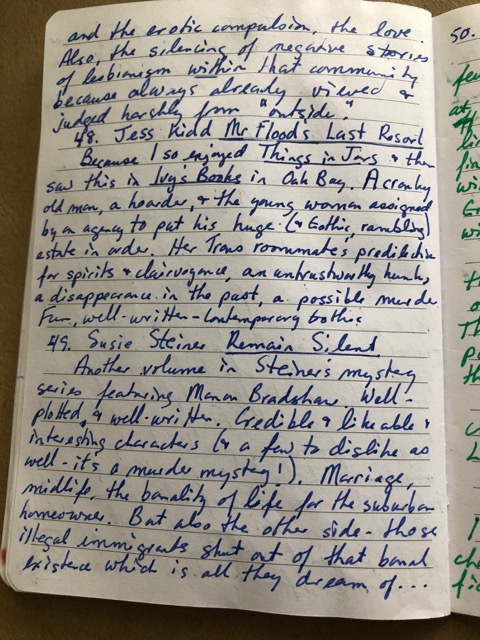 and the erotic compulsion, the love.
Also, the silencing of negative stories
of lesbianism within that community
because always already viewed &
judged harshly from "outside."
48. Jess Kidd Mr Flood's Last Resort
Because I so enjoyed Things in Jars & then
saw this in Ivy's Books in Oak Bay. A cranky
old man, a hoarder, & the young woman assigned
by an agency to put his huge (& Gothic, rambling)
estate in order. Her Trans roommate's predilection
for spirits & clairvoyance, an untrustworthy hunk,
a disappearance in the past, a possible murder
Fun, well-written - Contemporary Gothic
49. Susie Steiner Remain Silent
Another volume in Steiner's mystery
series featuring Manon Bradshaw. Well-
plotted, & well-written. Credible & likeable &
interesting characters (& a few to dislike as
well - it's a murder mystery!). Marriage,
midlife, the banality of life for the suburban
homeowner. But also the other side - those
illegal immigrants shut out of that banal
existence which is all they dream of...
50.